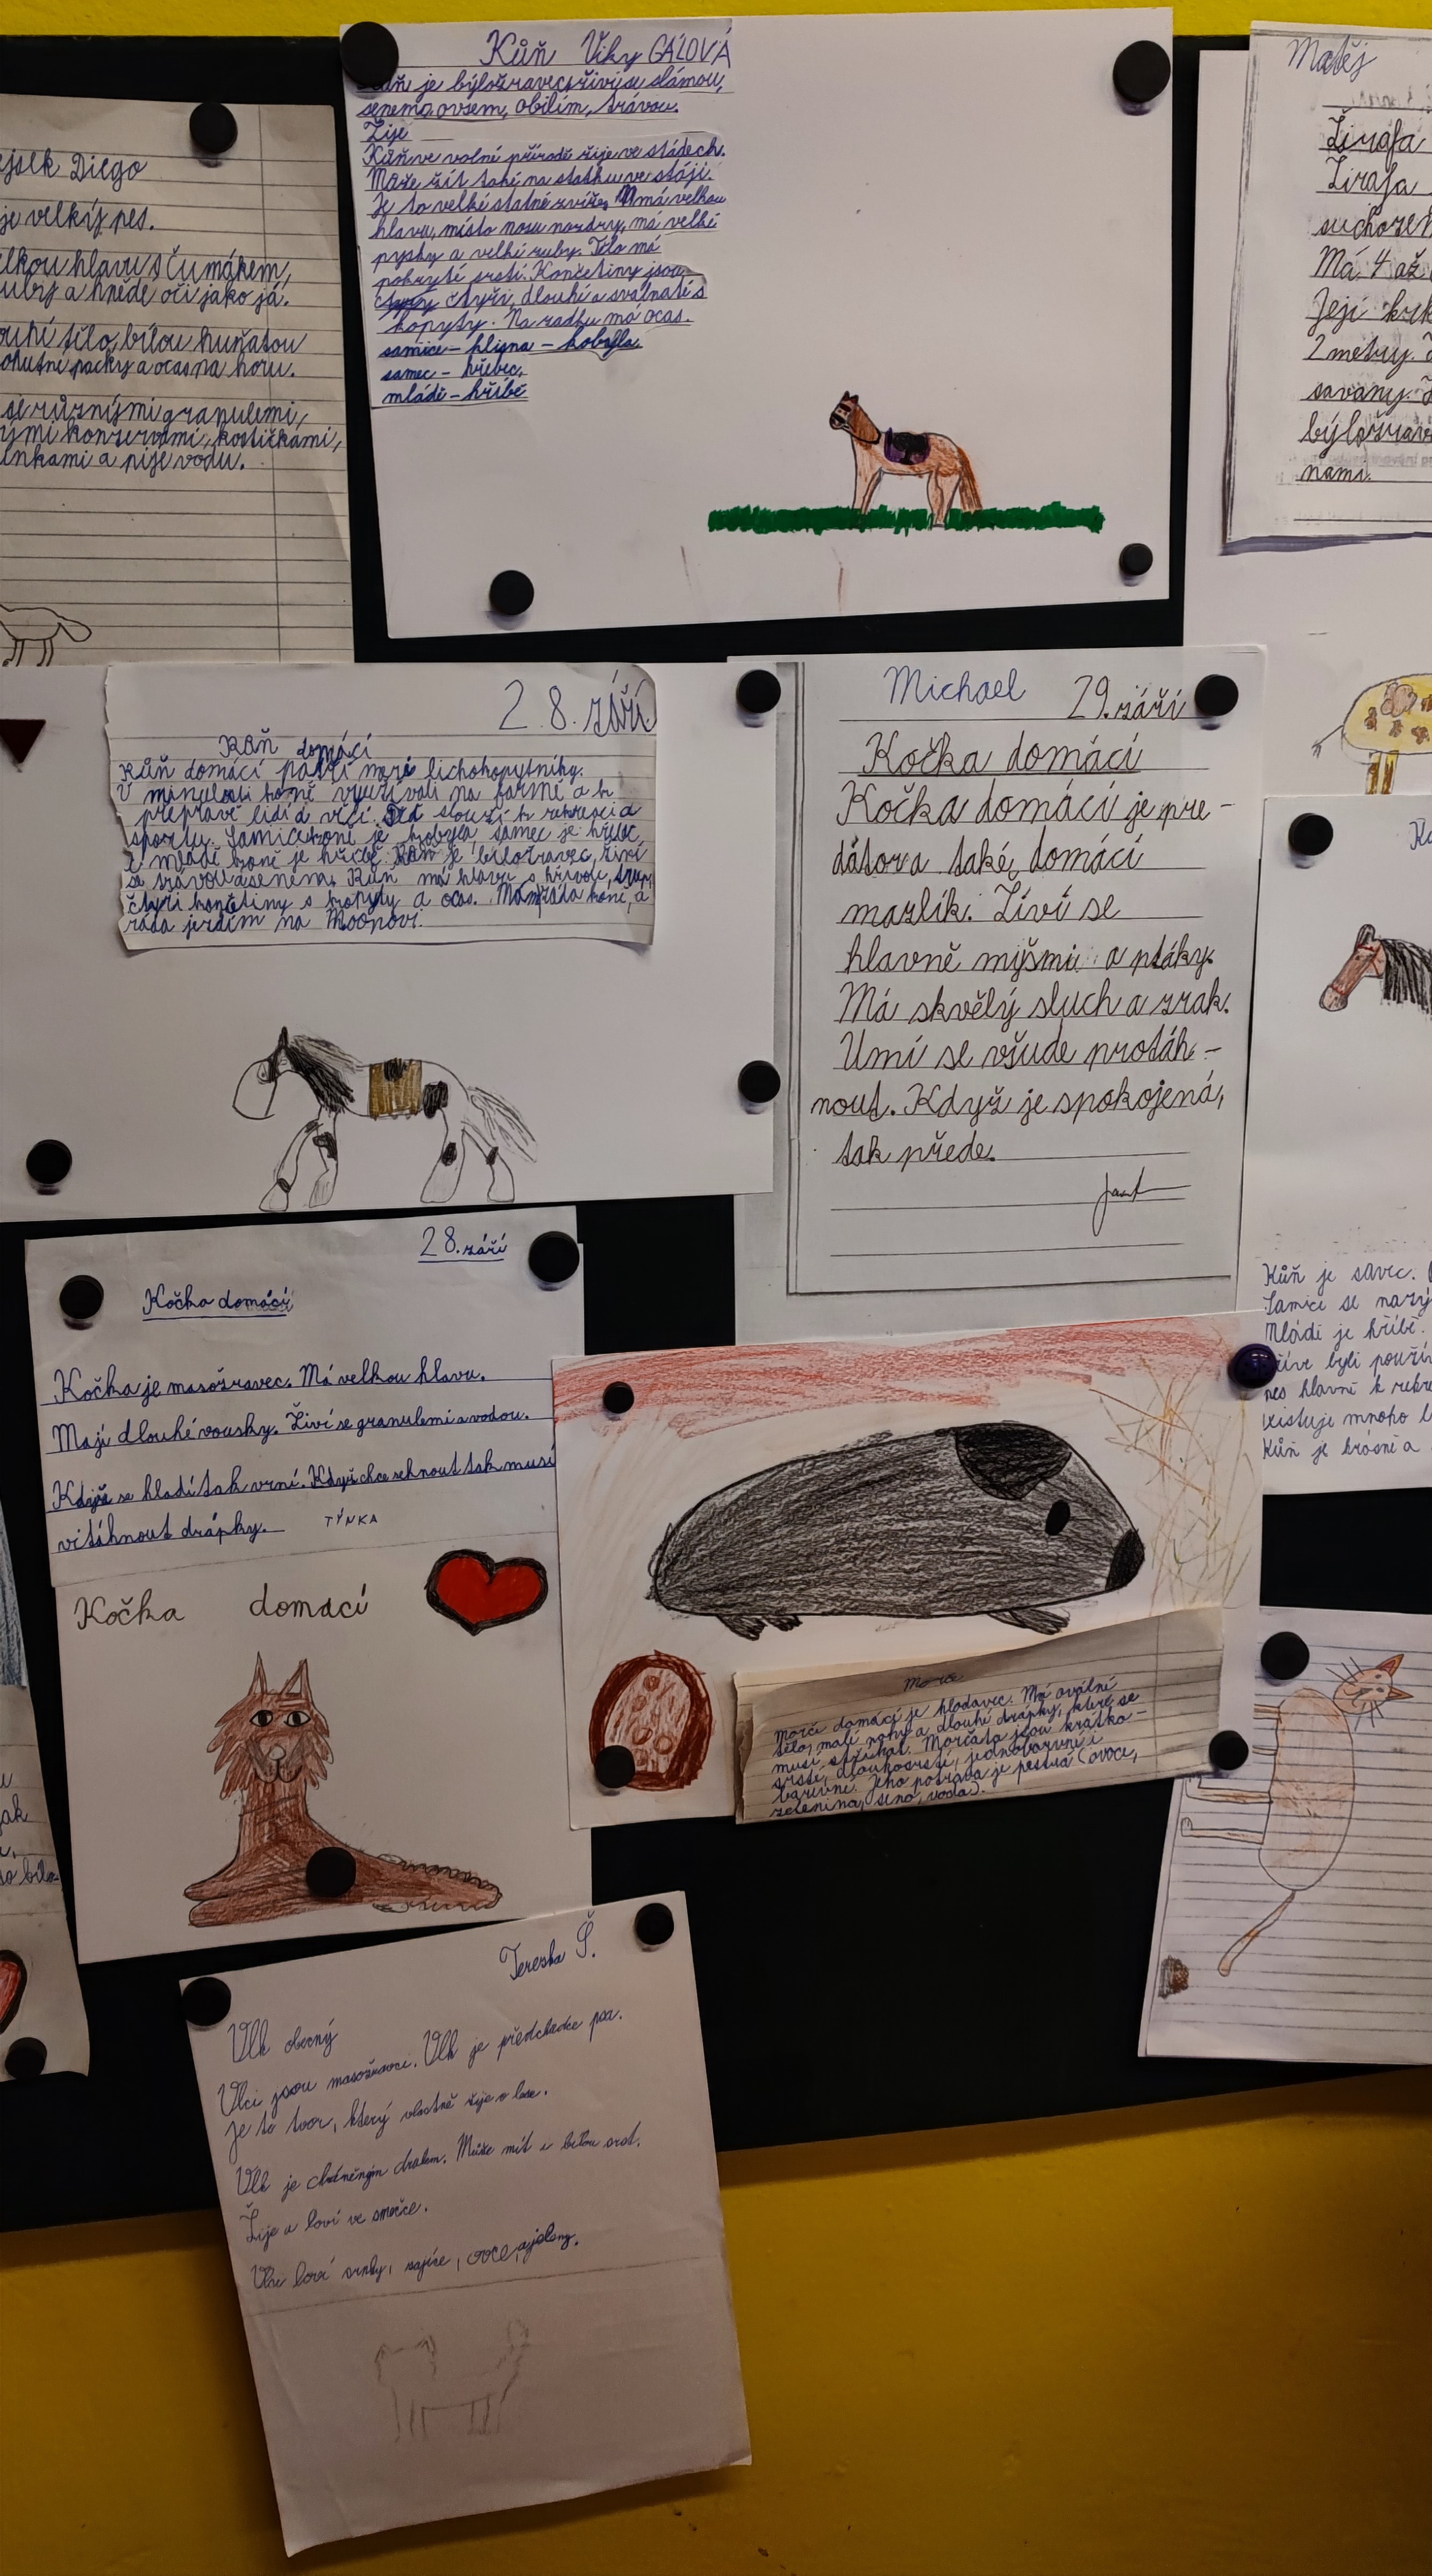 Kůň Viky GÁLOVÁ
je býložravec, živí se slámou,
senem, ovsem, obilím, trávou.
Žije
Kůň ve volné přírodě žije ve stádech.
Může žít také na statku ve stáji.
Je to velké statné zvíře, má velkou
hlavu, místo nosu nozdry, má velké
pysky a velké zuby. Tělo má
pokryté srstí. Končetiny jsou
čtyři, dlouhé a svalnaté s
kopyty. Na zadku má ocas.
samice – klisna – kobylla
samec – hřebec,
mládě – hříbě
Diego
je velký pes.
hlavu s čumákem,
a hnědé oči jako já.
tělo, bílou huňatou
packy a ocas na horu.
se různými granulemi,
konzervami, kostičkami,
a pije vodu.
Matěj
Žirafa
Žirafa
Má 4 až
Její krk
2 metry.
savany.
nami.
28. září
Kůň domácí
Kůň domácí patří mezi lichokopytníky.
V minulosti koně využívali na farmě a k
přepravě lidí a věcí. slouží k rekreaci a
sportu. Samice koně je kobyla, samec je hřebec
a mládě koně je hříbě. Kůň je bíložravec, živí
se trávou a senem. Kůň má hlavu s hřívou,
čtyři končetiny s kopyty a ocas. Mám ráda koně, a
ráda jezdím na Moonovi.
Michael 29. září
Kočka domácí
Kočka domácí je pre-
dátor a také domácí
mazlík. Živí se
hlavně myšmi a ptáky.
Má skvělý sluch a zrak.
Umí se všude protáh-
nout. Když je spokojená,
tak přede.
28. září
Kočka domácí
Kočka je masožravec. Má velkou hlavu.
Mají dlouhé vousky. Živí se granulemi a vodou.
Když se hladí tak vrní. Když chce sehnout tak musí
vitáhnout drápky. TÝNKA
Kočka domácí
Kůň je savec.
Samice se
Mládě je hříbě.
byli
hlavně k
existuje mnoho
Kůň je krásné a
Morče
Morče domácí je hlodavec. Má oválné
tělo, malé nohy a dlouhé drápky, které se
musí stříhat. Morčata jsou krátko-
srsté, dlouhosrsté, jednobarevné i
barevné. Jeho potrava je pestrá (ovoce,
zelenina, seno, voda).
Tereska Š.
Vlk obecný
Vlci jsou masožravci. Vlk je předchůdce psa.
Je to tvor, který vlastně žije v lese.
Vlk je chráněným druhem. Může mít i bílou srst.
Žije a loví ve smečce.
Vlci loví srnky, zajíce, ovce, a jeleny.